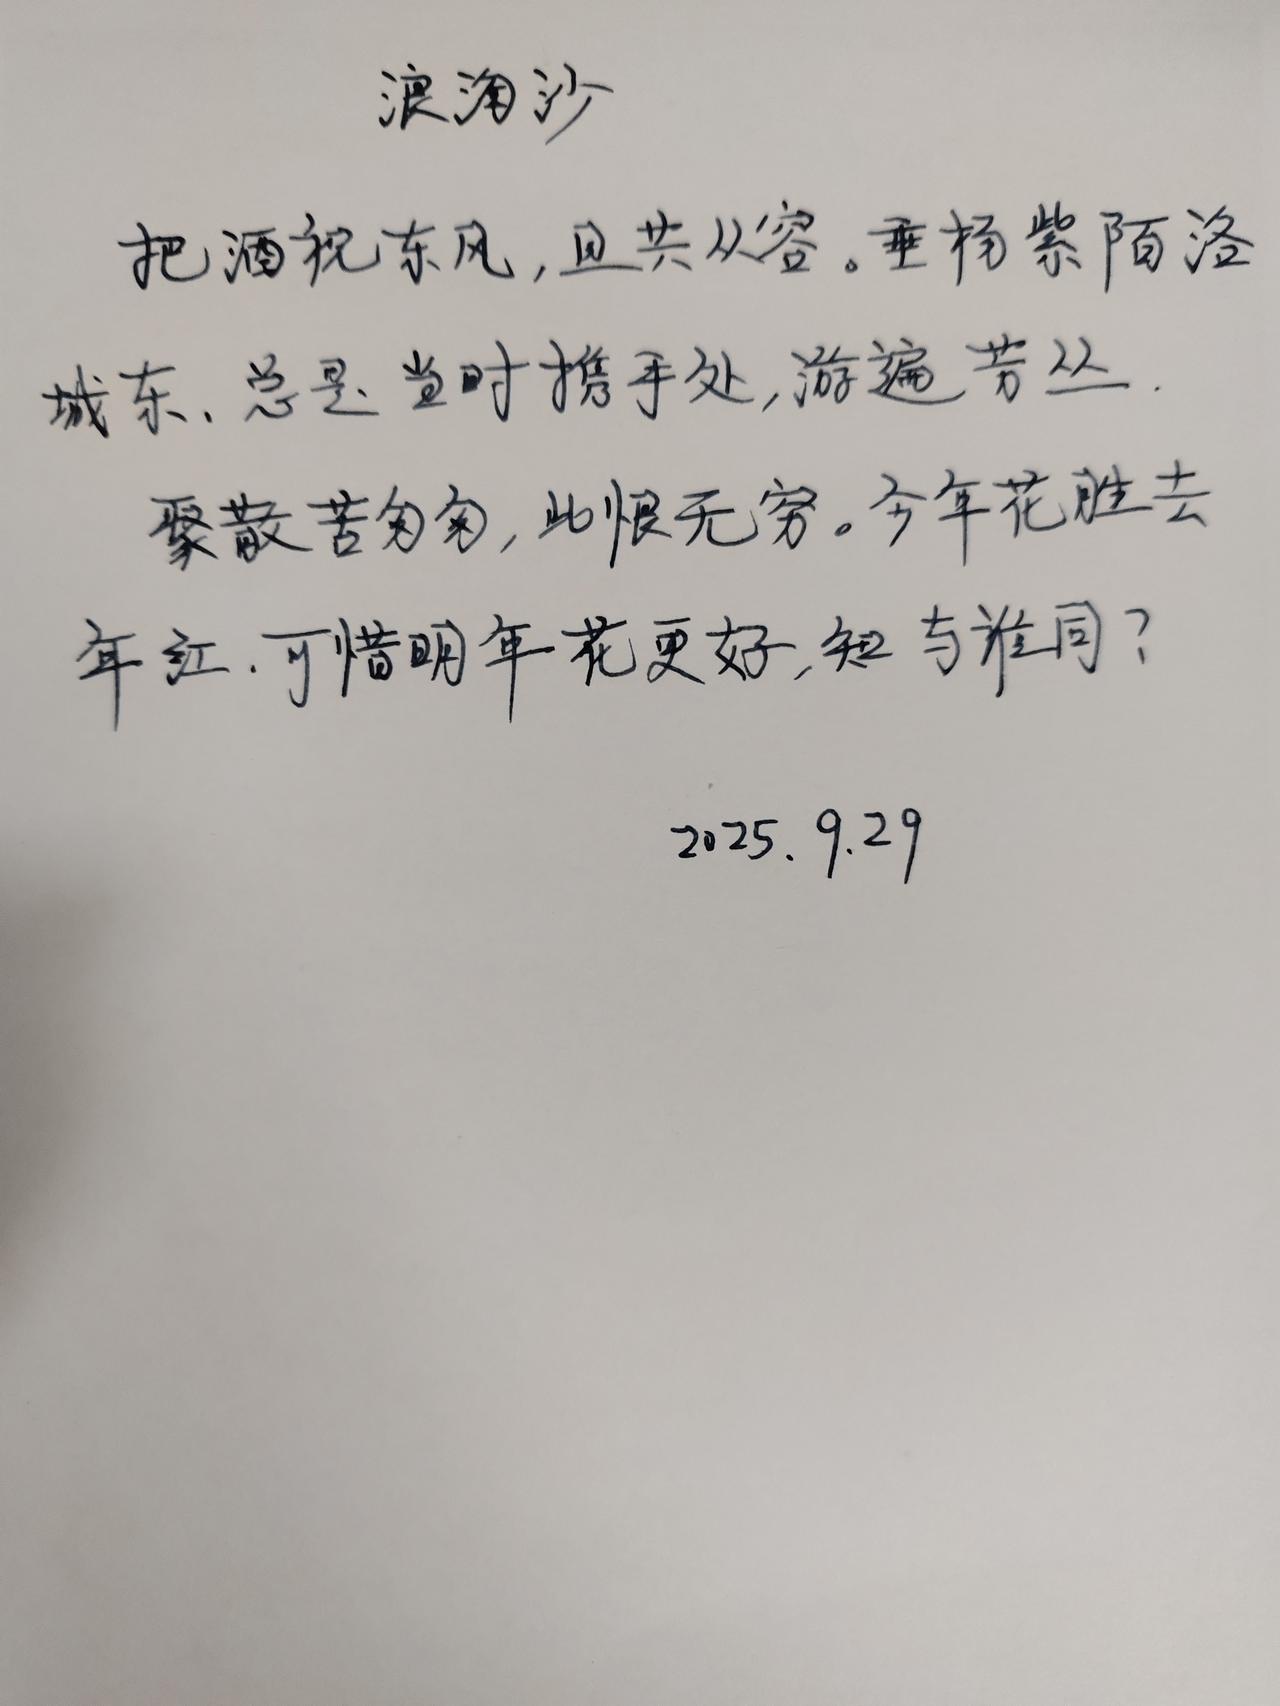 浪淘沙
把酒祝东风,且共从容。垂杨紫陌洛
城东.总是当时携手处,游遍芳丛.
聚散苦匆匆,此恨无穷。今年花胜去
年红.可惜明年花更好,知与谁同?
2025.9.29